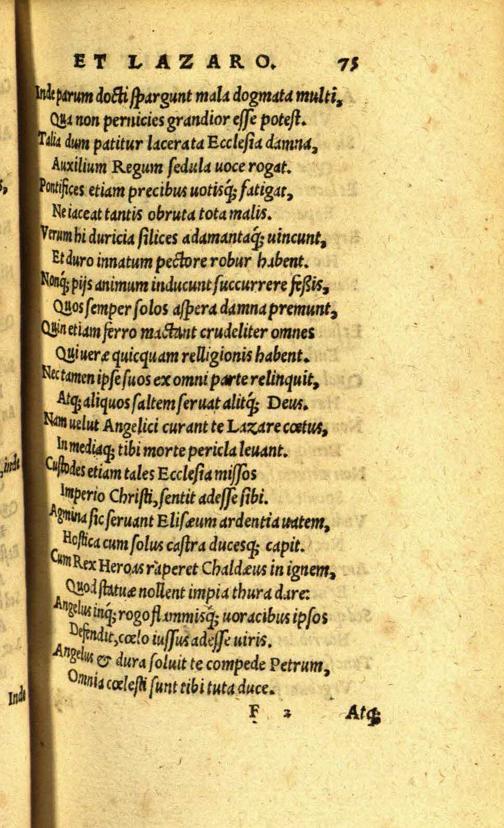 ET LAZARO. 75
Inde parum docti spargunt mala dogmata multi,
Qua non pernicies grandior esse potest.
Talia dum patitur lacerata Ecclesia damna,
Auxilium Regum sedula uoce rogat.
Pontifices etiam precibus uotisq́; fatigat,
Ne iaceat tantis obruta tota malis.
Verum hi duricia silices adamantaq́; uincunt,
Et duro innatum pectore robur habent.
Nonq́; pijs animum inducunt succurrere feßis,
Quos semper solos aspera damna premunt,
Quin etiam ferro mactant crudeliter omnes
Qui ueræ quicquam relligionis habent.
Nec tamen ipse suos ex omni parte relinquit,
Atq; aliquos saltem seruat alitq́; Deus.
Nam uelut Angelici curant te Lazare cœtus,
In mediaq́; tibi morte pericla leuant.
Custodes etiam tales Ecclesia missos
Imperio Christi, sentit adesse sibi.
Agmina sic seruant Elisæum ardentia uatem,
Hostica cum solus castra ducesq́; capit.
Cum Rex Heroas raperet Chaldæus in ignem,
Quod statuæ nollent impia thura dare:
Angelus inq́; rogo flammisq́; uoracibus ipsos
Defendit, cœlo iussus adesse uiris.
Angelus & dura soluit te compede Petrum,
Omnia cœlesti sunt tibi tuta duce.
F 2 Atq;
inde
Inde